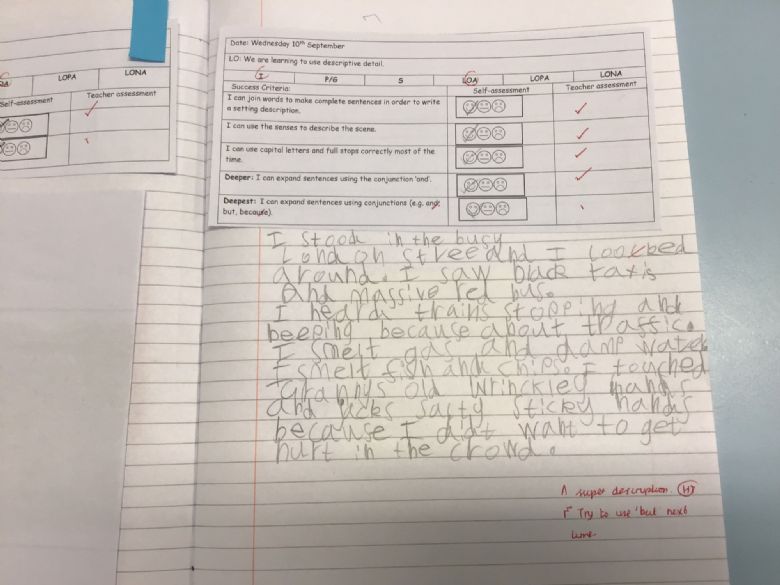 LOPA
LONA
Self-assessment
Teacher assessment
Date: Wednesday 10th September
LO: We are learning to use descriptive detail.
I
P/G
S
LOA
LOPA
LONA
Success Criteria:
Self-assessment
Teacher assessment
I can join words to make complete sentences in order to write
a setting description.
I can use the senses to describe the scene.
I can use capital letters and full stops correctly most of the
time.
Deeper: I can expand sentences using the conjunction 'and'.
Deepest: I can expand sentences using conjunctions (e.g. and,
but, because).
I stood in the busy
London street and I loocked
around. I saw black taxis
And massive red bus.
I heard trains stopping and
beeping because about traffic.
I smelt gas and damp water
I smelt fish and chips. I touched
grannys old wrinckley hands
and salty sticky hands
because I didt want to get
hurt in the crowd.
A super description. H
Try to use 'but' next
time.